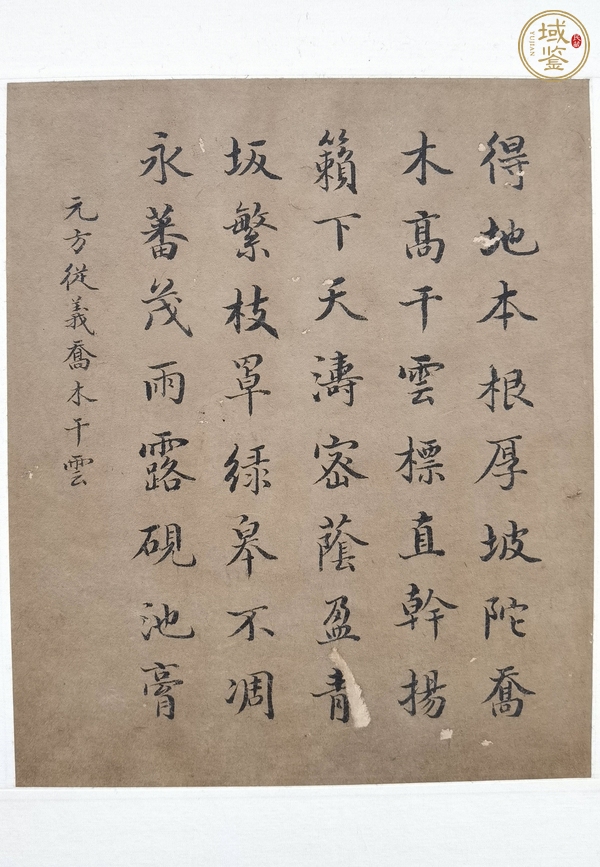 得地本根厚坡陀喬
木高干雲標直幹揚
籟下天濤密蔭盈青
坂繁枝罩緑皋不凋
永蕃茂雨露硯池膏
元方從義喬木干雲
域鉴
YUJIAN